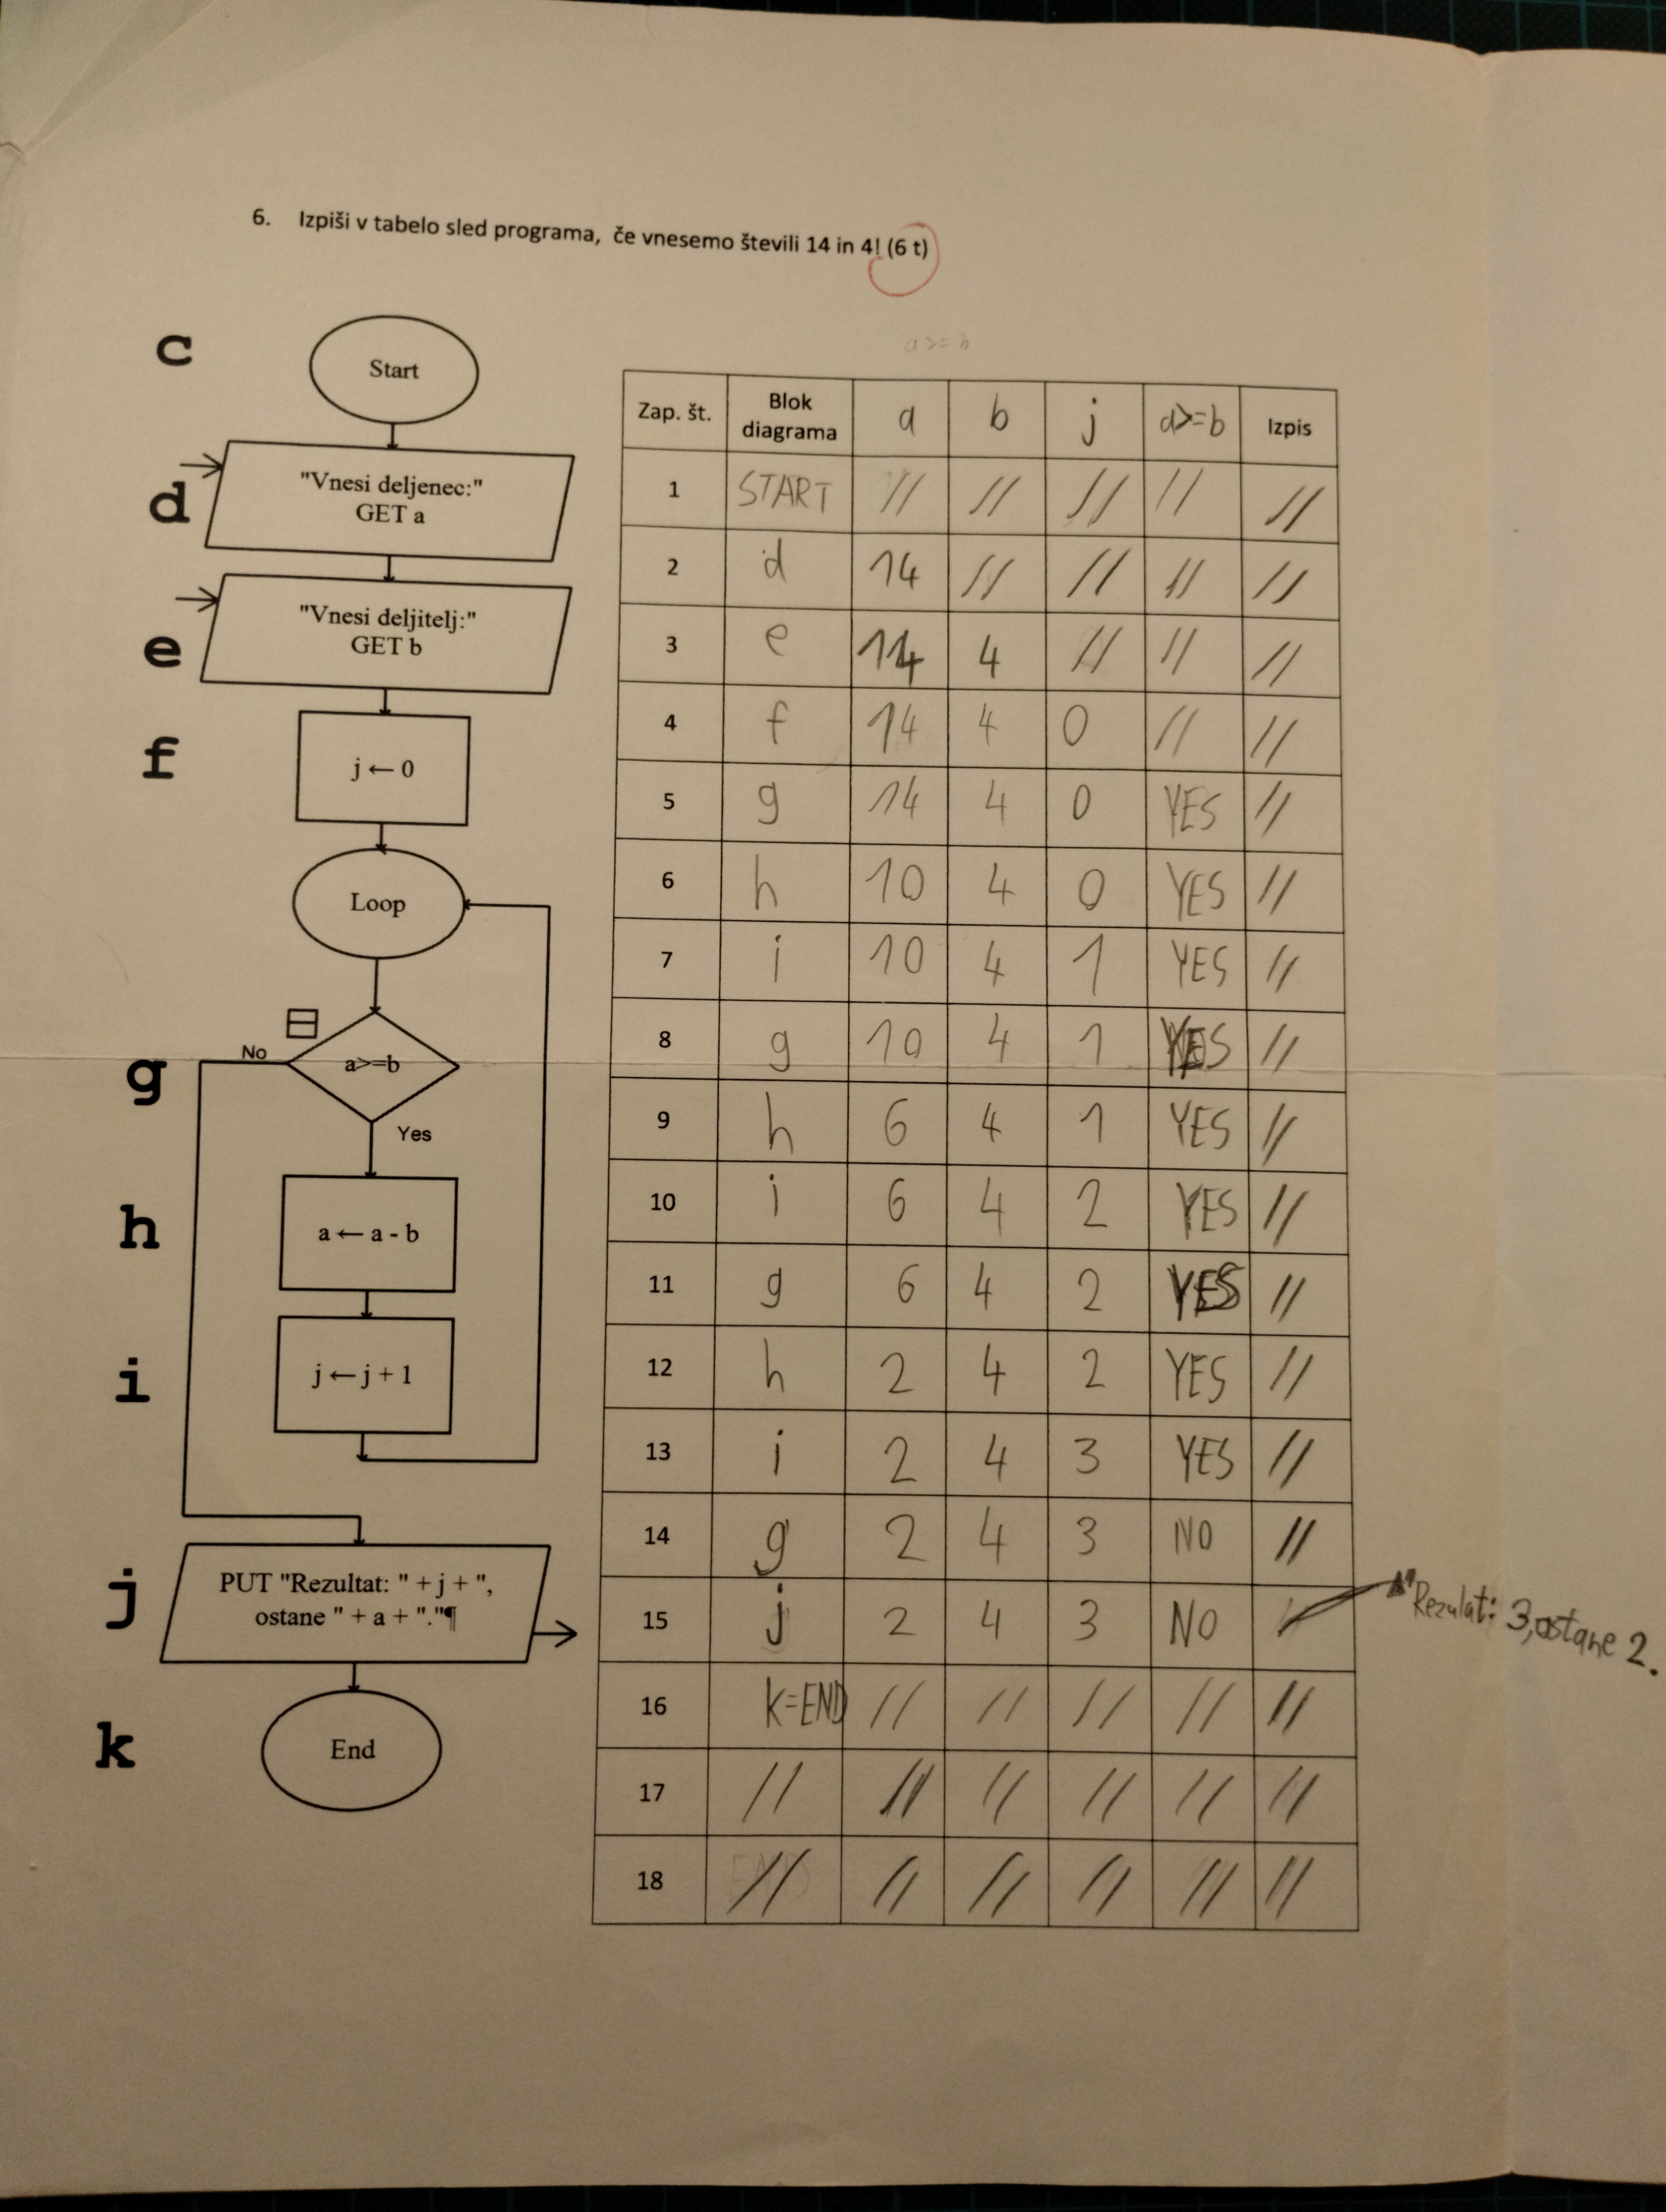 6. Izpiši v tabelo sled programa, če vnesemo števili 14 in 4! (6 t)
a>=b
c
Start
d
"Vnesi deljenec:"
GET a
e
"Vnesi deljitelj:"
GET b
f
j ← 0
Loop
g
No
a>=b
Yes
h
a ← a - b
i
j ← j + 1
j
PUT "Rezultat: " + j + ",
ostane " + a + "."¶
k
End
Zap. št. Blok diagrama a b j a>=b Izpis
1 START // // // // //
2 d 14 // // // //
3 e 14 4 // // //
4 f 14 4 0 // //
5 g 14 4 0 YES //
6 h 10 4 0 YES //
7 i 10 4 1 YES //
8 g 10 4 1 YES //
9 h 6 4 1 YES //
10 i 6 4 2 YES //
11 g 6 4 2 YES //
12 h 2 4 2 YES //
13 i 2 4 3 YES //
14 g 2 4 3 NO //
15 j 2 4 3 NO Rezulat: 3, ostane 2.
16 k=END // // // // //
17 // // // // // //
18 // // // // // //